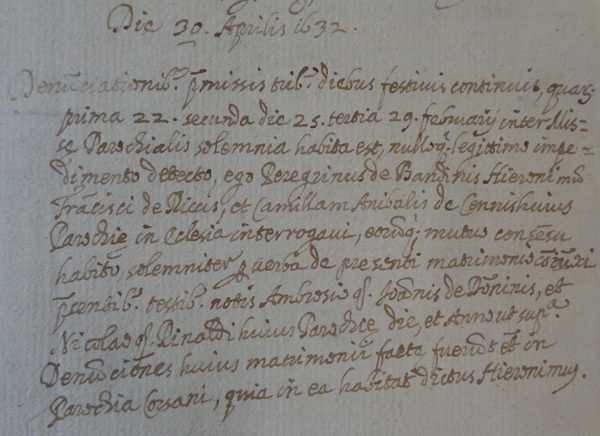 Die 30. Aprilis 1632.
Denũciationib. p̃missis trib. diebus festivis continuis, quar;
prima 22. secunda die 25. tertia 29. februarij inter Mis=
se Parochialis solemnia habita est, nulloq; legitimo impe=
dimento detecto, ego Peregrinus de Bandinis Hieronimũ
Frãcisci de Riccis, et Camillam Anibalis de Cennis huius
Parochie in Eclesia interrogavi, eorũq; mutuo consẽsu
habito solemniter p verba de presenti matrimonio cõiũxi
p̃sentib. testib. notis Ambrosio q. Ioãnis de Dominis, et
Nicolao q. Rinaldi huius Parochie die, et Anno ut supᵃ.
Denũciones huius matrimonii facte fuerũt et in
Parochia Corsani, quia in ea habitat dictus Hieronimus.